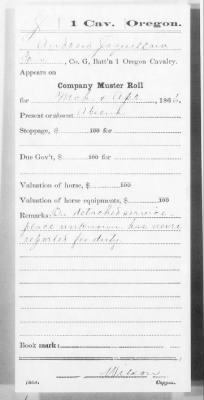 1 Cav. Oregon.
Andrew
Co. G, Batt'n 1 Oregon Cavalry.
Appears on
Company Muster Roll
for Mch & Apl, 186
Present or absent Absent
Stoppage, $ 100 for
Due Gov't, $ 100 for
Valuation of horse, $ 100
Valuation of horse equipments, $ 100
Remarks: On detached service,
place unknown has never
reported for duty
Book mark:
Copyist.